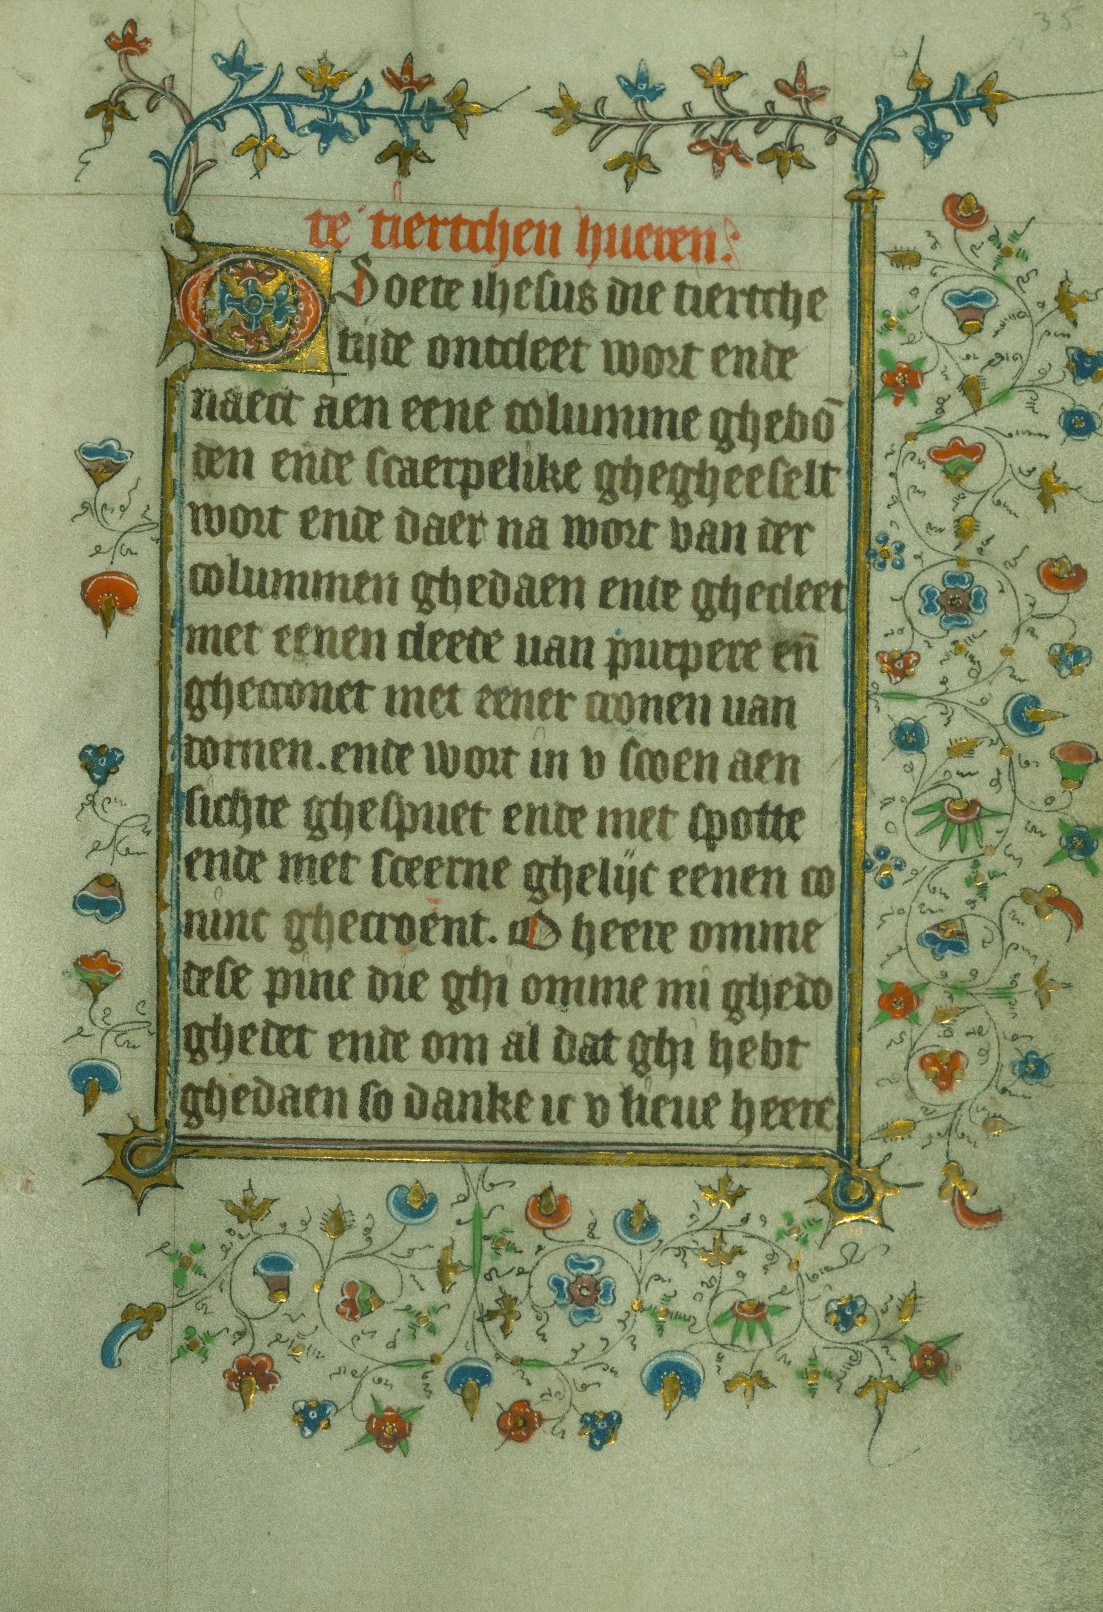 35
te tiertchen hueren:
O Soete ihesus die tiertche
tijde ontcleet wort ende
naect aen eene columme ghebō
den ende scaerpelike ghegheeselt
wort ende daer na wort van der
colummen ghedaen ende ghecleet
met eenen cleede van purpere eñ
ghecronet met eener cronen van
dornen. ende wort in v scoen aen
sichte ghespuet ende met spotte
ende met sceerne ghelijc eenen co
ninc ghecroent. O heere omme
dese pine die ghi omme mi ghedo
ghedet ende om al dat ghi hebt
ghedaen so danke ic v lieue heere